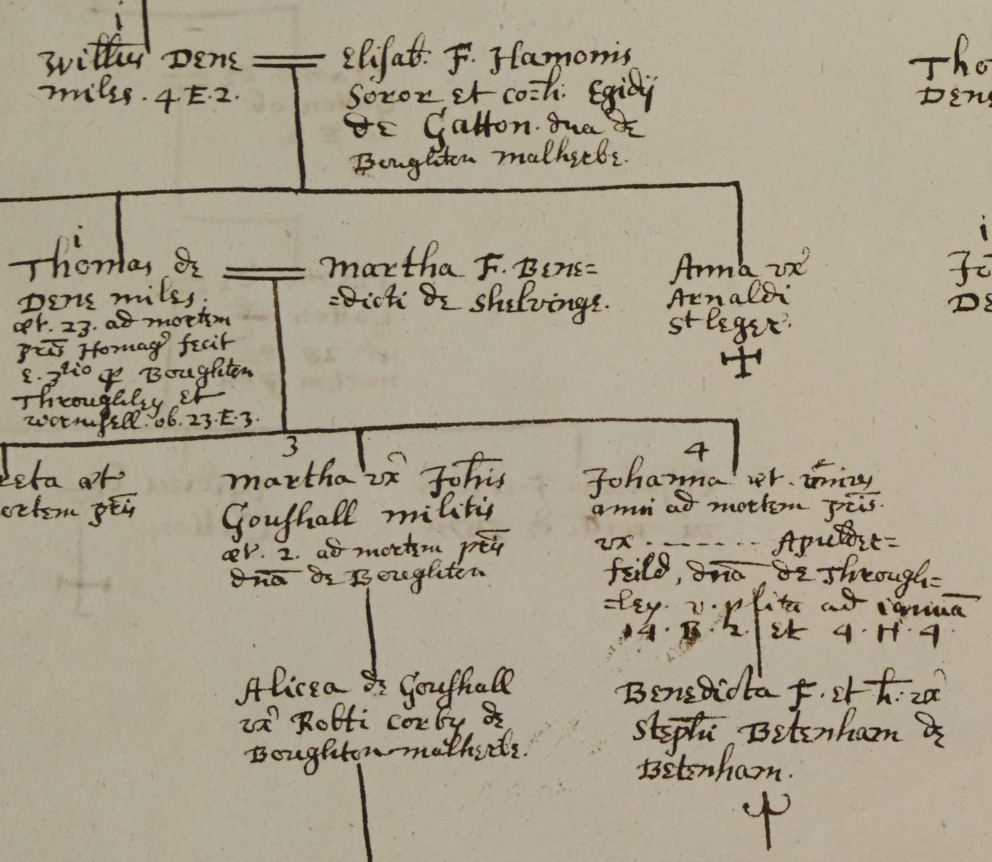 i
Willus Dene
miles. 4. E. 2.
Elisab. F. Hamonis
Soror et coh. Egidij
de Gatton. dna de
Boughton malherbe.
Tho
Dene
i
Thomas de
Dene miles.
æt. 23. ad mortem
pris Homag fecit
E. 3tio p Boughton
Throughley et
wormsell. ob. 23. E. 3.
Martha F. Bene=
=dicti de Shelvinge.
Anna vx
Arnaldi
St leger.
i
Jo
De
reta æt
ortem pris
3
Martha vx Johis
Goushall militis
æt. 2. ad mortem pris
dna de Boughton
4
Johanna æt. vnius
anni ad mortem pris.
vx ------- Apulder=
feild, dna de Through=
=ley. v. plita ad
14. R. 2. et 4. H. 4.
Alicea de Goushall
vx Robti Corby de
Boughton malherbe.
Benedicta F. et h. vx
Stephi Betenham de
Betenham.